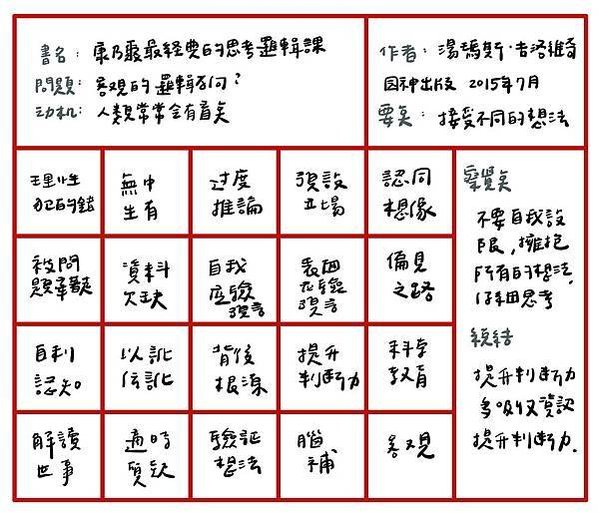 書名：康乃爾最經典的思考邏輯課
問題：客观的邏輯為何？
动机：人類常常会有盲矣
作者：湯瑪斯·吉洛維奇
因神出版 2015年7月
要矣：接受不同的想法
理性
犯的錯
無中
生有
过度
推論
預設
立場
認同
想像
被問
題牽
資料
欠缺
自我
应驗
預言
表面
应驗
預言
偏見
之路
自利
認知
以訛
伝訛
背後
根源
提升
判断力
科学
教育
解讀
世事
適時
質疑
驗証
想法
腦
補
客观
察覺矣
不要自我設
限，擁抱
所有的想法，
仔細思考
総結
提升判断力
多吸収資認
提升判断力.